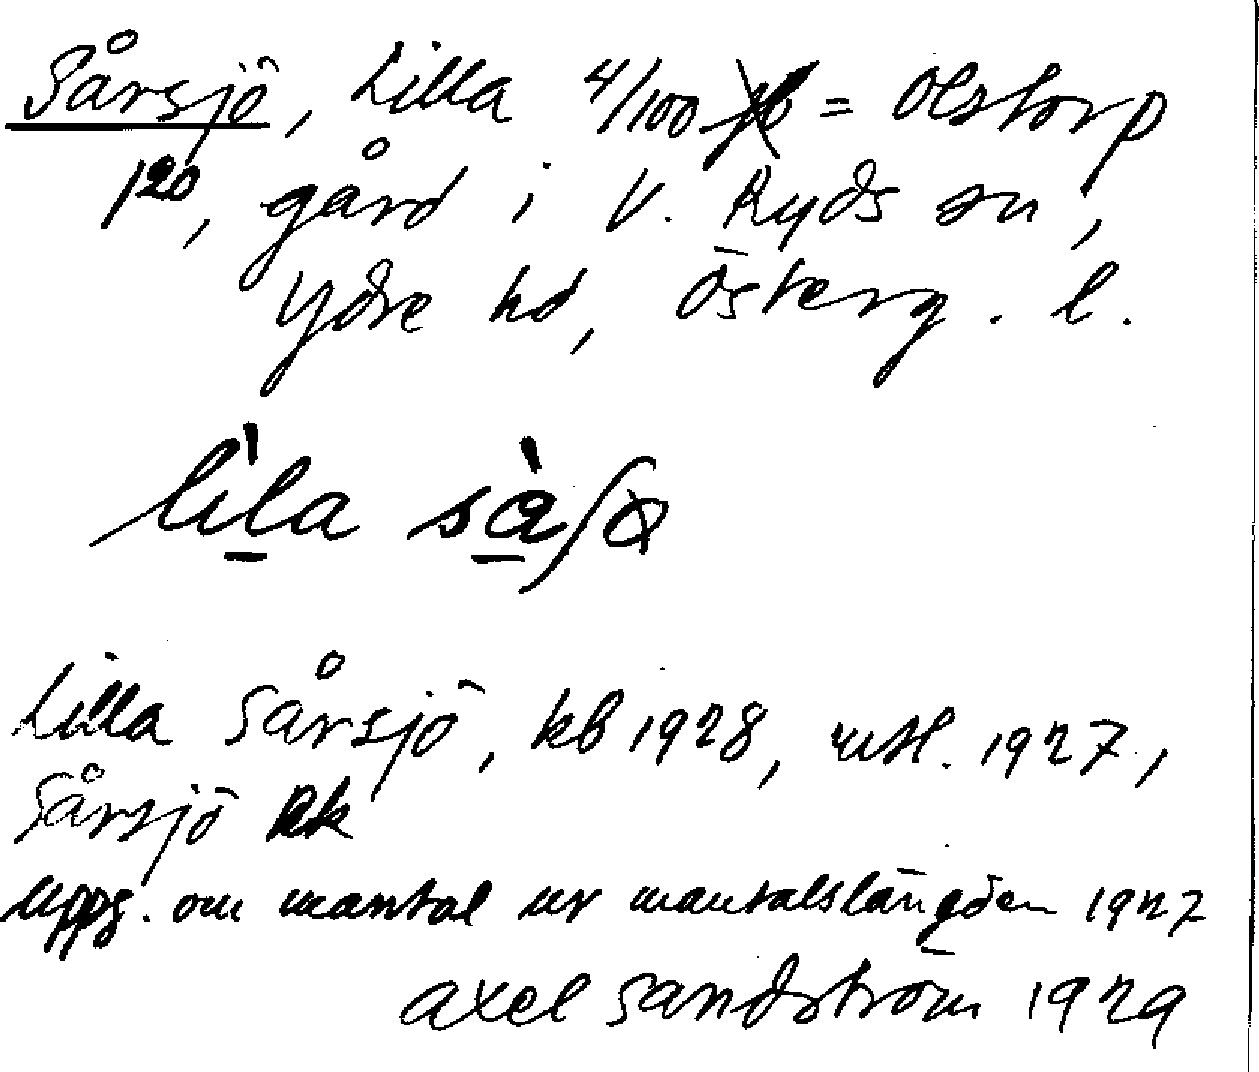 Sårsjö, Lilla 4/100 = Olstorp
1²⁰, gård i V. Ryds sn,
Ydre hd, Österg. l.
lìla
Lilla Sårsjö, kb 1928, mtl. 1927,
Sårsjö Rk
Uppg. om mantal ur mantalslängden 1927
Axel Sandström 1929